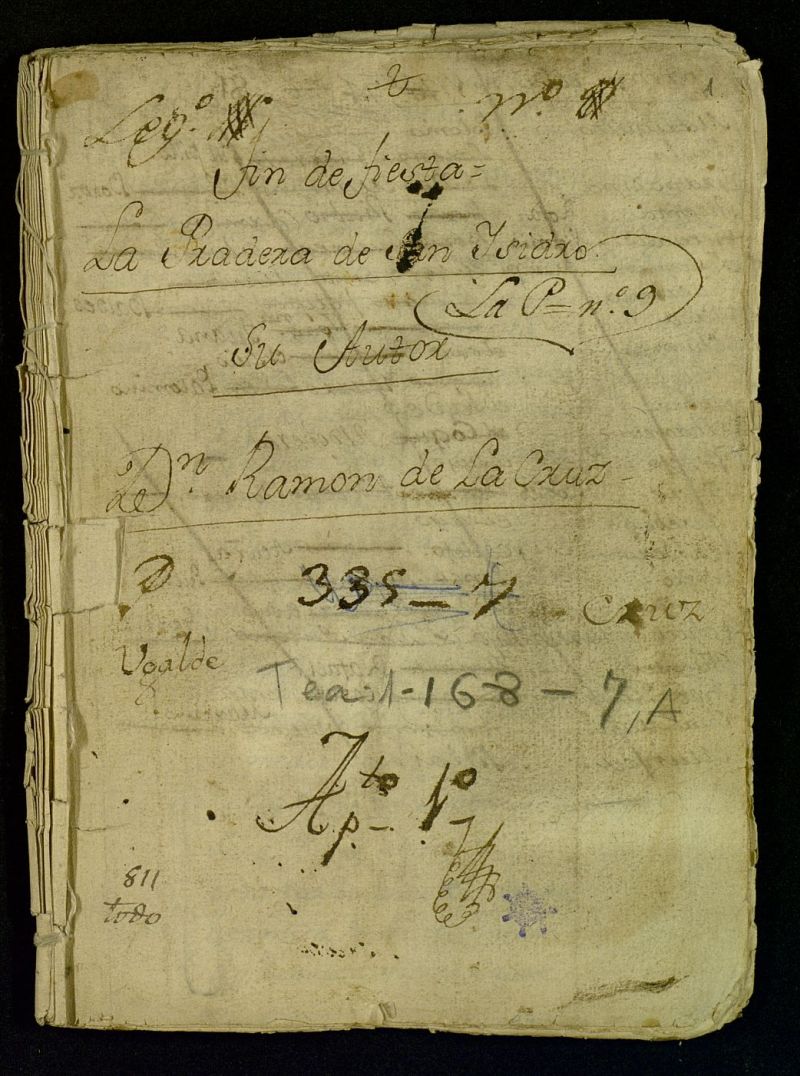 1
Leg.º n.º
fin de fiesta=
La Pradera de San Isidro.
La P= n.º 9
Su Autor
De Dn. Ramon de La Cruz
D 335-7 Cruz
Ugalde
Tea 1-168-7, A
Apto. 1º
811
todo